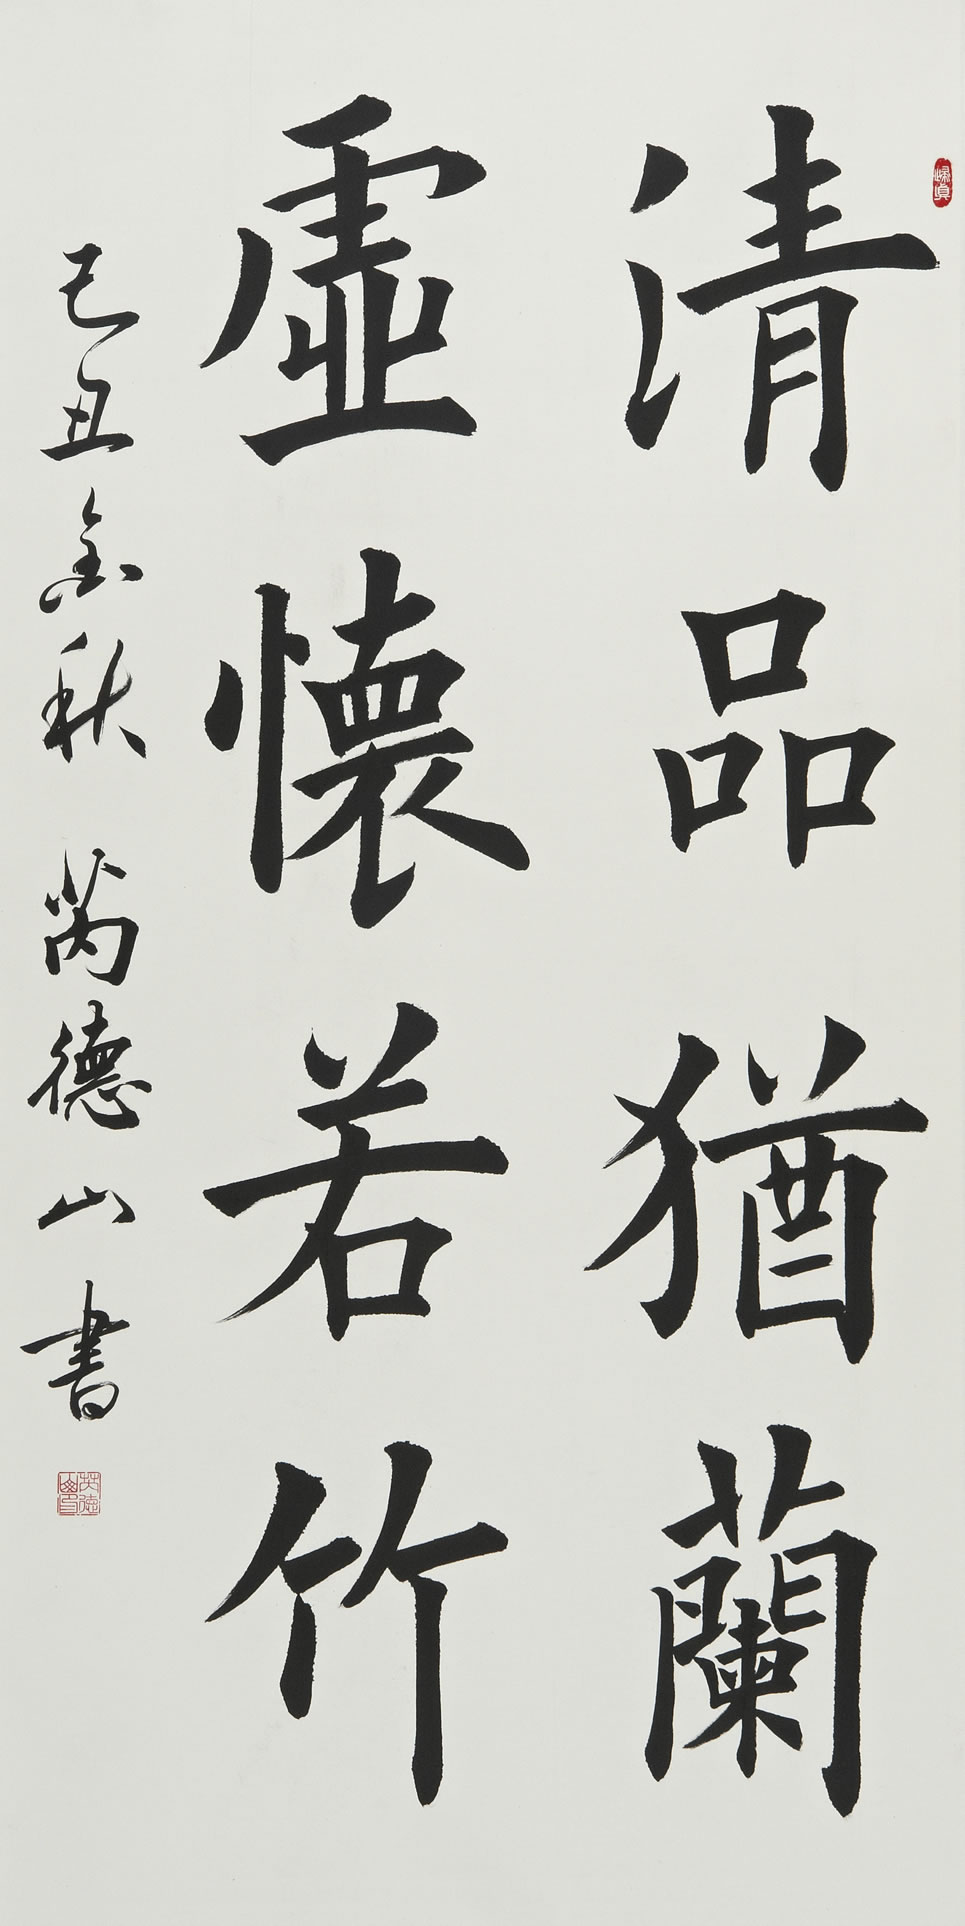 清品猶蘭
虛懷若竹
己丑金秋 芮德山書